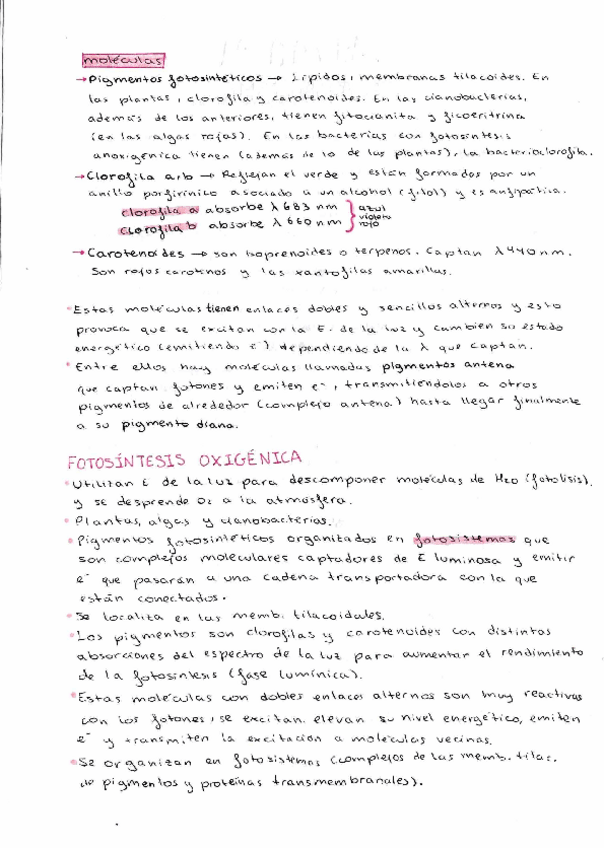 moléculas
→ Pigmentos fotosintéticos → Lípidos, membranas tilacoides. En
las plantas, clorofila y carotenoides. En las cianobacterias,
además de los anteriores, tienen fitocianita y ficoeritrina
(en las algas rojas). En las bacterias con fotosíntesis
anoxigénica tienen (además de lo de las plantas), la bacterioclorofila.
→ Clorofila a,b → Reflejan el verde y están formados por un
anillo porfirínico asociado a un alcohol (fitol) y es anfipática.
clorofila a absorbe λ 683 nm } azul
violeta
clorofila b absorbe λ 660 nm } rojo
→ Carotenoides → son isoprenoides o terpenos. Captan λ 440 nm.
Son rojos carotinos y las xantofilas amarillas.
• Estas moléculas tienen enlaces dobles y sencillos alternos y esto
provoca que se excitan con la E. de la luz y cambien su estado
energético (emitiendo e⁻) dependiendo de la λ que captan.
• Entre ellos hay moléculas llamadas pigmentos antena
que captan fotones y emiten e⁻, transmitiéndolos a otros
pigmentos de alrededor (complejo antena) hasta llegar finalmente
a su pigmento diana.
FOTOSÍNTESIS OXIGÉNICA
• Utilizan E de la luz para descomponer moléculas de H2O (fotólisis),
y se desprende O2 a la atmósfera.
• Plantas, algas y cianobacterias.
• Pigmentos fotosintéticos organizados en fotosistemas que
son complejos moleculares captadores de E luminosa y emitir
e⁻ que pasarán a una cadena transportadora con la que
están conectados.
• Se localiza en las memb. tilacoidales.
• Los pigmentos son clorofilas y carotenoides con distintas
absorciones del espectro de la luz para aumentar el rendimiento
de la fotosíntesis (fase lumínica).
• Estas moléculas con dobles enlaces alternos son muy reactivas
con los fotones, se excitan, elevan su nivel energético, emiten
e⁻ y transmiten la excitación a moléculas vecinas.
• Se organizan en fotosistemas (complejos de las memb. tilac.
de pigmentos y proteínas transmembranales).